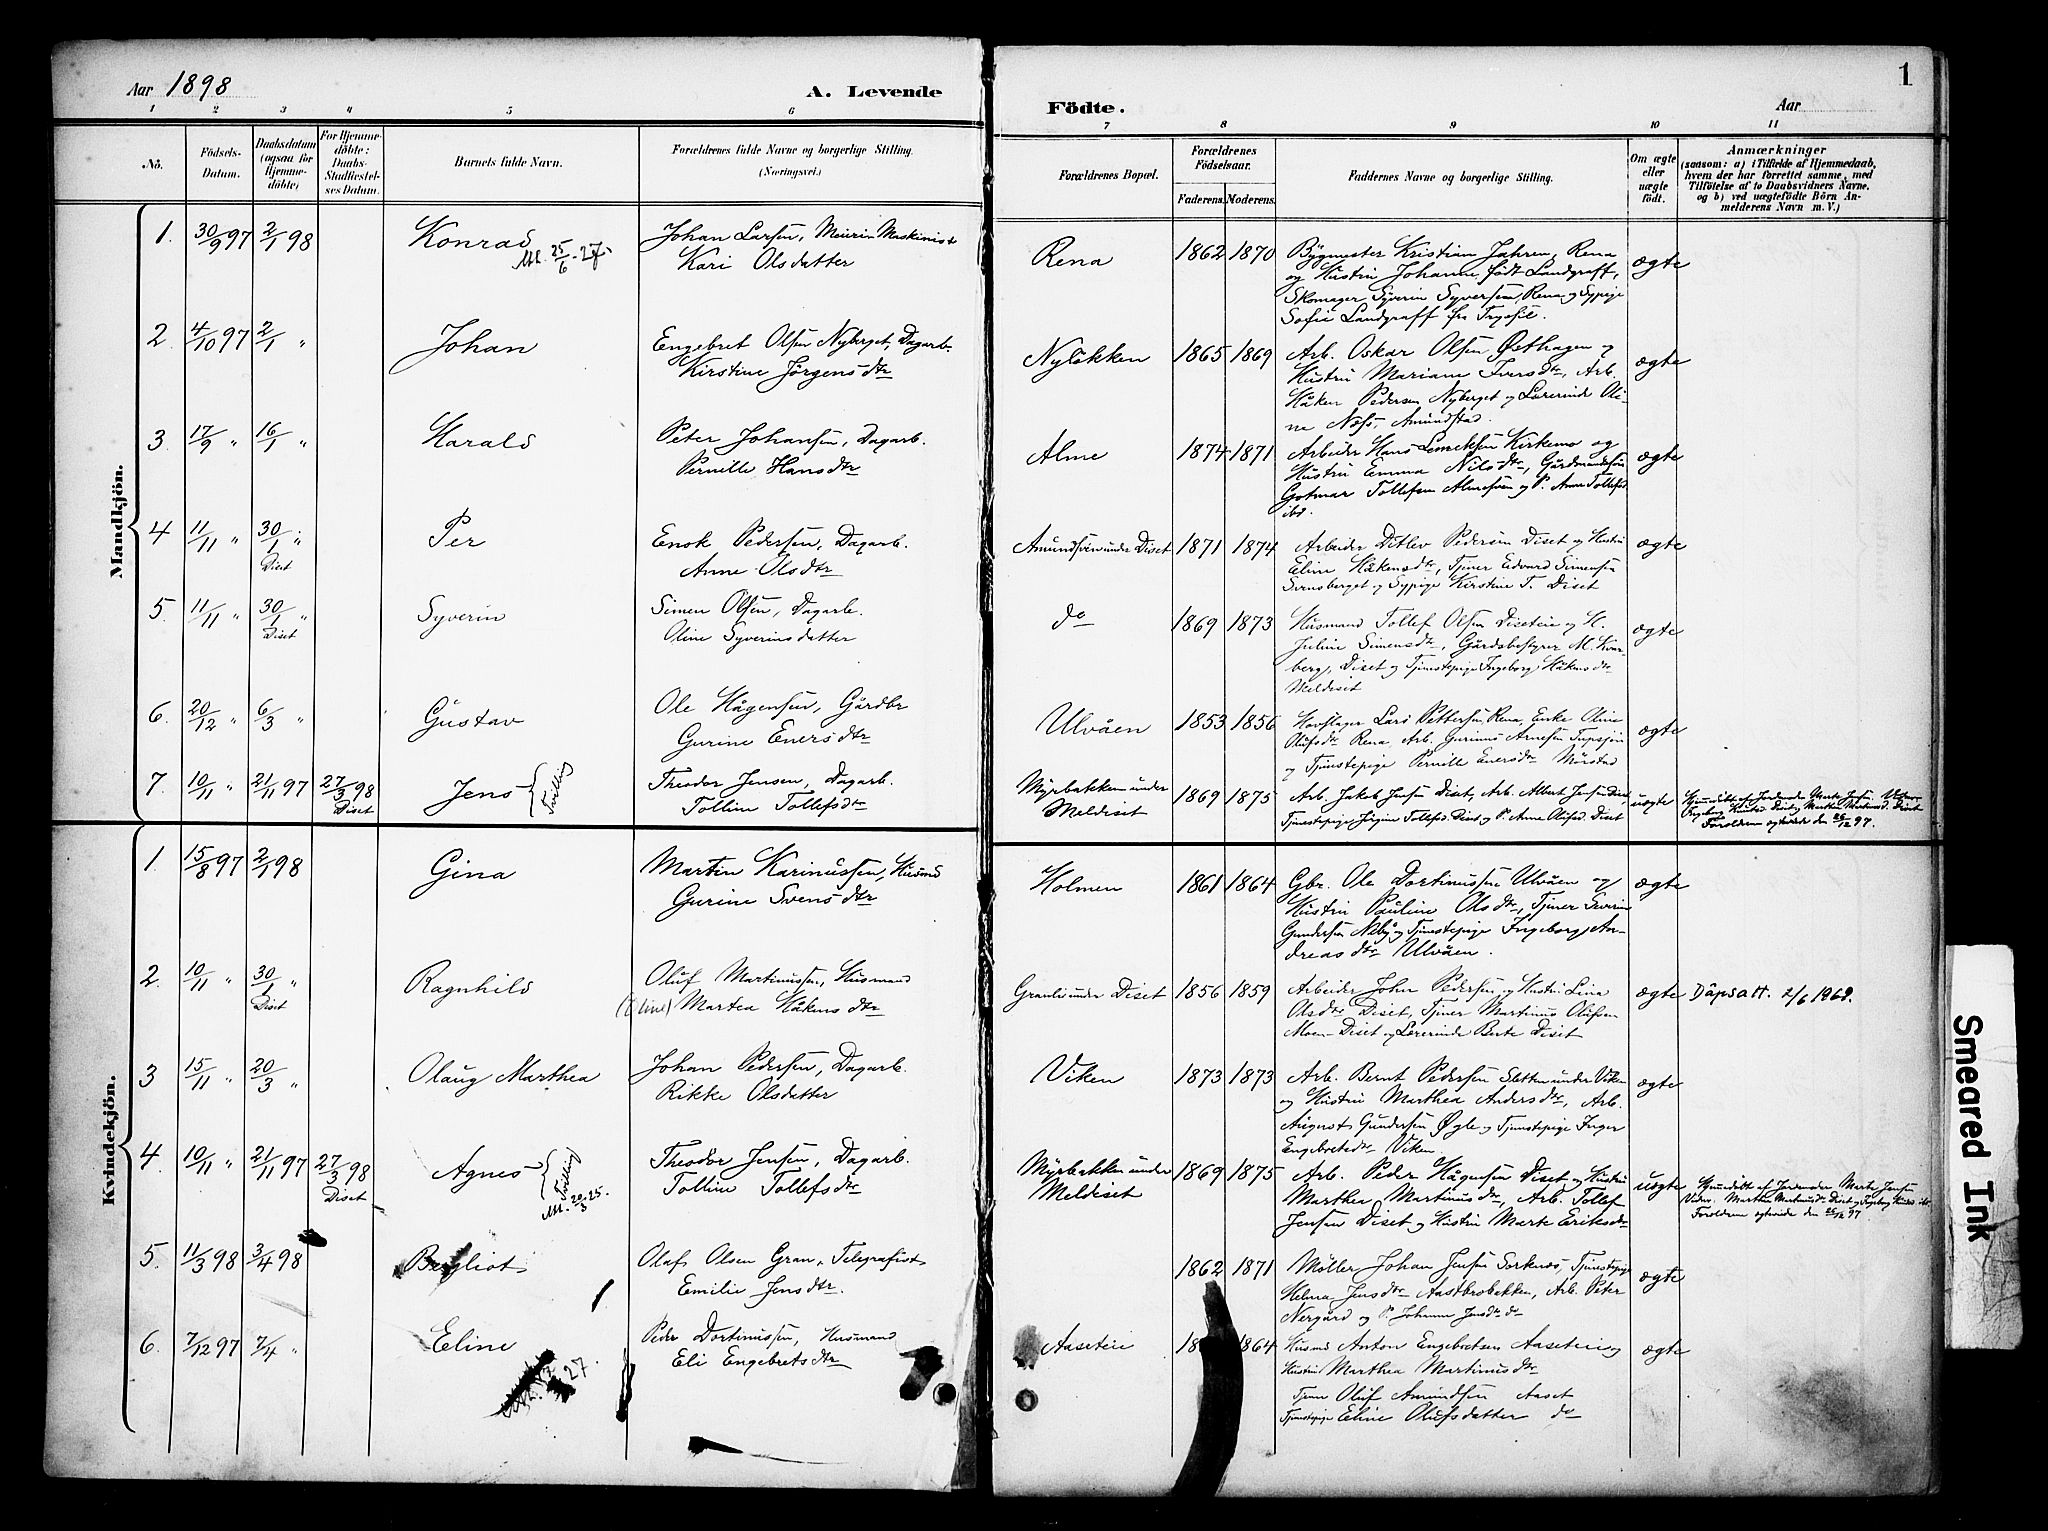 Aar 1898
A. Levende
Födte.
Aar
1
1 2 3 4 5 6 7 8 9 10 11
No.
Födsels-
Datum.
Daabsdatum
(ogsaa for
Hjemme-
döbte)
For Hjemme-
döbte:
Daabs-
Stadfæstel-
ses Datum.
Barnets fulde Navn.
Forældrenes fulde Navne og borgerlige Stilling.
(Næringsvei.)
Forældrenes Bopæl.
Forældrenes
Födselsaar.
Faderens. Moderens.
Faddernes Navne og borgerlige Stilling.
Om ægte
eller
uægte
födt.
Anmærkninger
(saasom: a) i Tilfælde af Hjemmedaab,
hvem der har forrettet samme, med
Tilföielse af to Daabsvidners Navne.
og b) ved uægtefödte Börn An-
melderens Navn m. V.)
Mandkjön.
1. 30/9 97 2/1 98 Konrad Johan Larsen, Meieri Maskinist
Att. 25/6-27
Kari Olsdatter
Rena 1862 1870 Bygmester Kristian Jahren, Rena
og Hustru Johanne født Landgraff,
Skomager Syverin Syversen, Rena og Sypige
Sofie Landgraff fra Trysil.
ægte
2. 4/10 97 2/1 " Johan Engebret Olsen Nyberget, Dagarb.
Kirstine Jørgensdtr
Nyløkken 1865 1869 Arb. Oskar Olsen Østhagen og
Hustru Mariane Iversdtr, Arb.
Håken Pedersen Nyberget og Lærerinde Oli-
ne Næss, Amundstad.
ægte
3 17/9 " 16/1 " Harald Peter Johansen, Dagarb.
Pernille Hansdtr
Alme 1874 1871 Arbeider Hans Lemeksen Kirkemo og
Hustru Emma Nilsdtr, Gårdmandssøn
Gotmar Tollefsen Almesveen og P. Anne Tollefsd.
ibd.
ægte
4 11/11 " 30/1 " Diset Per Enok Pedersen, Dagarb.
Anne Olsdtr
Amundsveen under Diset 1871 1874 Arbeider Ditlev Pedersen Diset og Hustru
Eline Håkensdtr, Tjener Edvard Simensen
Svensberget og Sypige Kirstine T. Diset
ægte
5. 11/11 " 30/1 " Diset Syverin Simen Olsen, Dagarb.
Oline Syverinsdatter
do 1869 1873 Husmand Tollef Olsen Diseteie og H.
Juline Simensdtr, Gårdsbestyrer M. Kvar-
berg, Diset og Tjenestepige Ingeborg Håkensdtr
Meldiset
ægte
6. 20/12 " 6/3 " Gustav Ole Hågensen, Gårdbr
Gurine Enersdtr
Ulvåen 1853 1856 Hovslager Lars Pettersen, Rena, Enke Oline
Olufsdtr Rena, Arb. Gurinus Arnesen Tupsjøn
og Tjenestepige Pernille Enersdtr Mørstad
ægte
7. 10/11 " 21/11 97 27/3 98 Diset Jens Tvillig Theodor Jensen, Dagarb.
Tolline Tollefsdtr
Myrbakken under
Meldiset
1869 1875 Arb. Jakob Jensen Diset, Arb. Albert Jensen Diset,
Tjenestepige Jørgine Tollefsd. Diset og P. Anne Olufsd. Diset
uægte Hjemdøbt af Jordemoder Marte Jensen.
Forældrene ægteviede den 26/12 97.
Kvindekjön.
1. 15/8 97 2/1 98 Gina Martin Karinussen, Husmd
Gurine Svensdtr
Holmen 1861 1864 Gbr. Ole Dortinussen Ulvåen og
Hustru Pauline Olsdtr, Tjener Severin
Gundersen Næby og Tjenestepige Ingeborg An-
dreasdtr Ulvåen.
ægte
2. 10/11 " 30/1 " Diset Ragnhild Oluf Martinussen, Husmand
(Oline) Martea Håkensdtr
Granli under Diset 1856 1859 Arbeider John Pedersen og Hustru Lina
Olsdtr Diset, Tjener Martinus Olufsen
Moen Diset og Lærerinde Berte Diset
ægte Dåpsatt. 2/6 1969.
3 15/11 " 20/3 " Olaug Marthea Johan Pedersen, Dagarb.
Rikke Olsdatter
Viken 1873 1873 Arb. Bernt Pedersen Sletten under Viken
og Hustru Marthea Andersdtr, Arb.
August Gundersen Øgle og Tjenestepige Inger
Engebretsdtr Viken.
ægte
4. 10/11 " 21/11 97 27/3 98 Diset Agnes Tvillig Theodor Jensen, Dagarb.
Att. 20/3-25.
Tolline Tollefsdtr
Myrbakken under
Meldiset
1869 1875 Arb. Peder Hågensen Diset og Hustru
Marthea Martinusdtr, Arb. Tollef
Jensen Diset og Hustru Marte Eriksdtr
uægte Hjemdøbt af Jordemoder Marte Jensen
Forældrene ægteviede den 26/12 97.
5. 11/3 98 3/4 98 Bergliot Olaf Olsen Gran, Telegrafist
Emilie Jensdtr.
1862 1871 Møller Johan Jensen Sorknæs, Tjenestepige
Helma Jensdtr Aastabrobakken, Arb. Peter
Nergård og P. Johanne Jensdtr do
ægte
6. 7/12 97 7/4 " Eline Peder Dortinussen, Husmand
27.
Eli Engebretsdtr
Aaseteie 1864 Husmd Anton Engebretsen Aaseteie og
Hustru Marthea Martinusdtr
Tjener Oluf Amundsen Aaset
Tjenestepige Eline Olufsdatter do
ægte
Smeared Ink